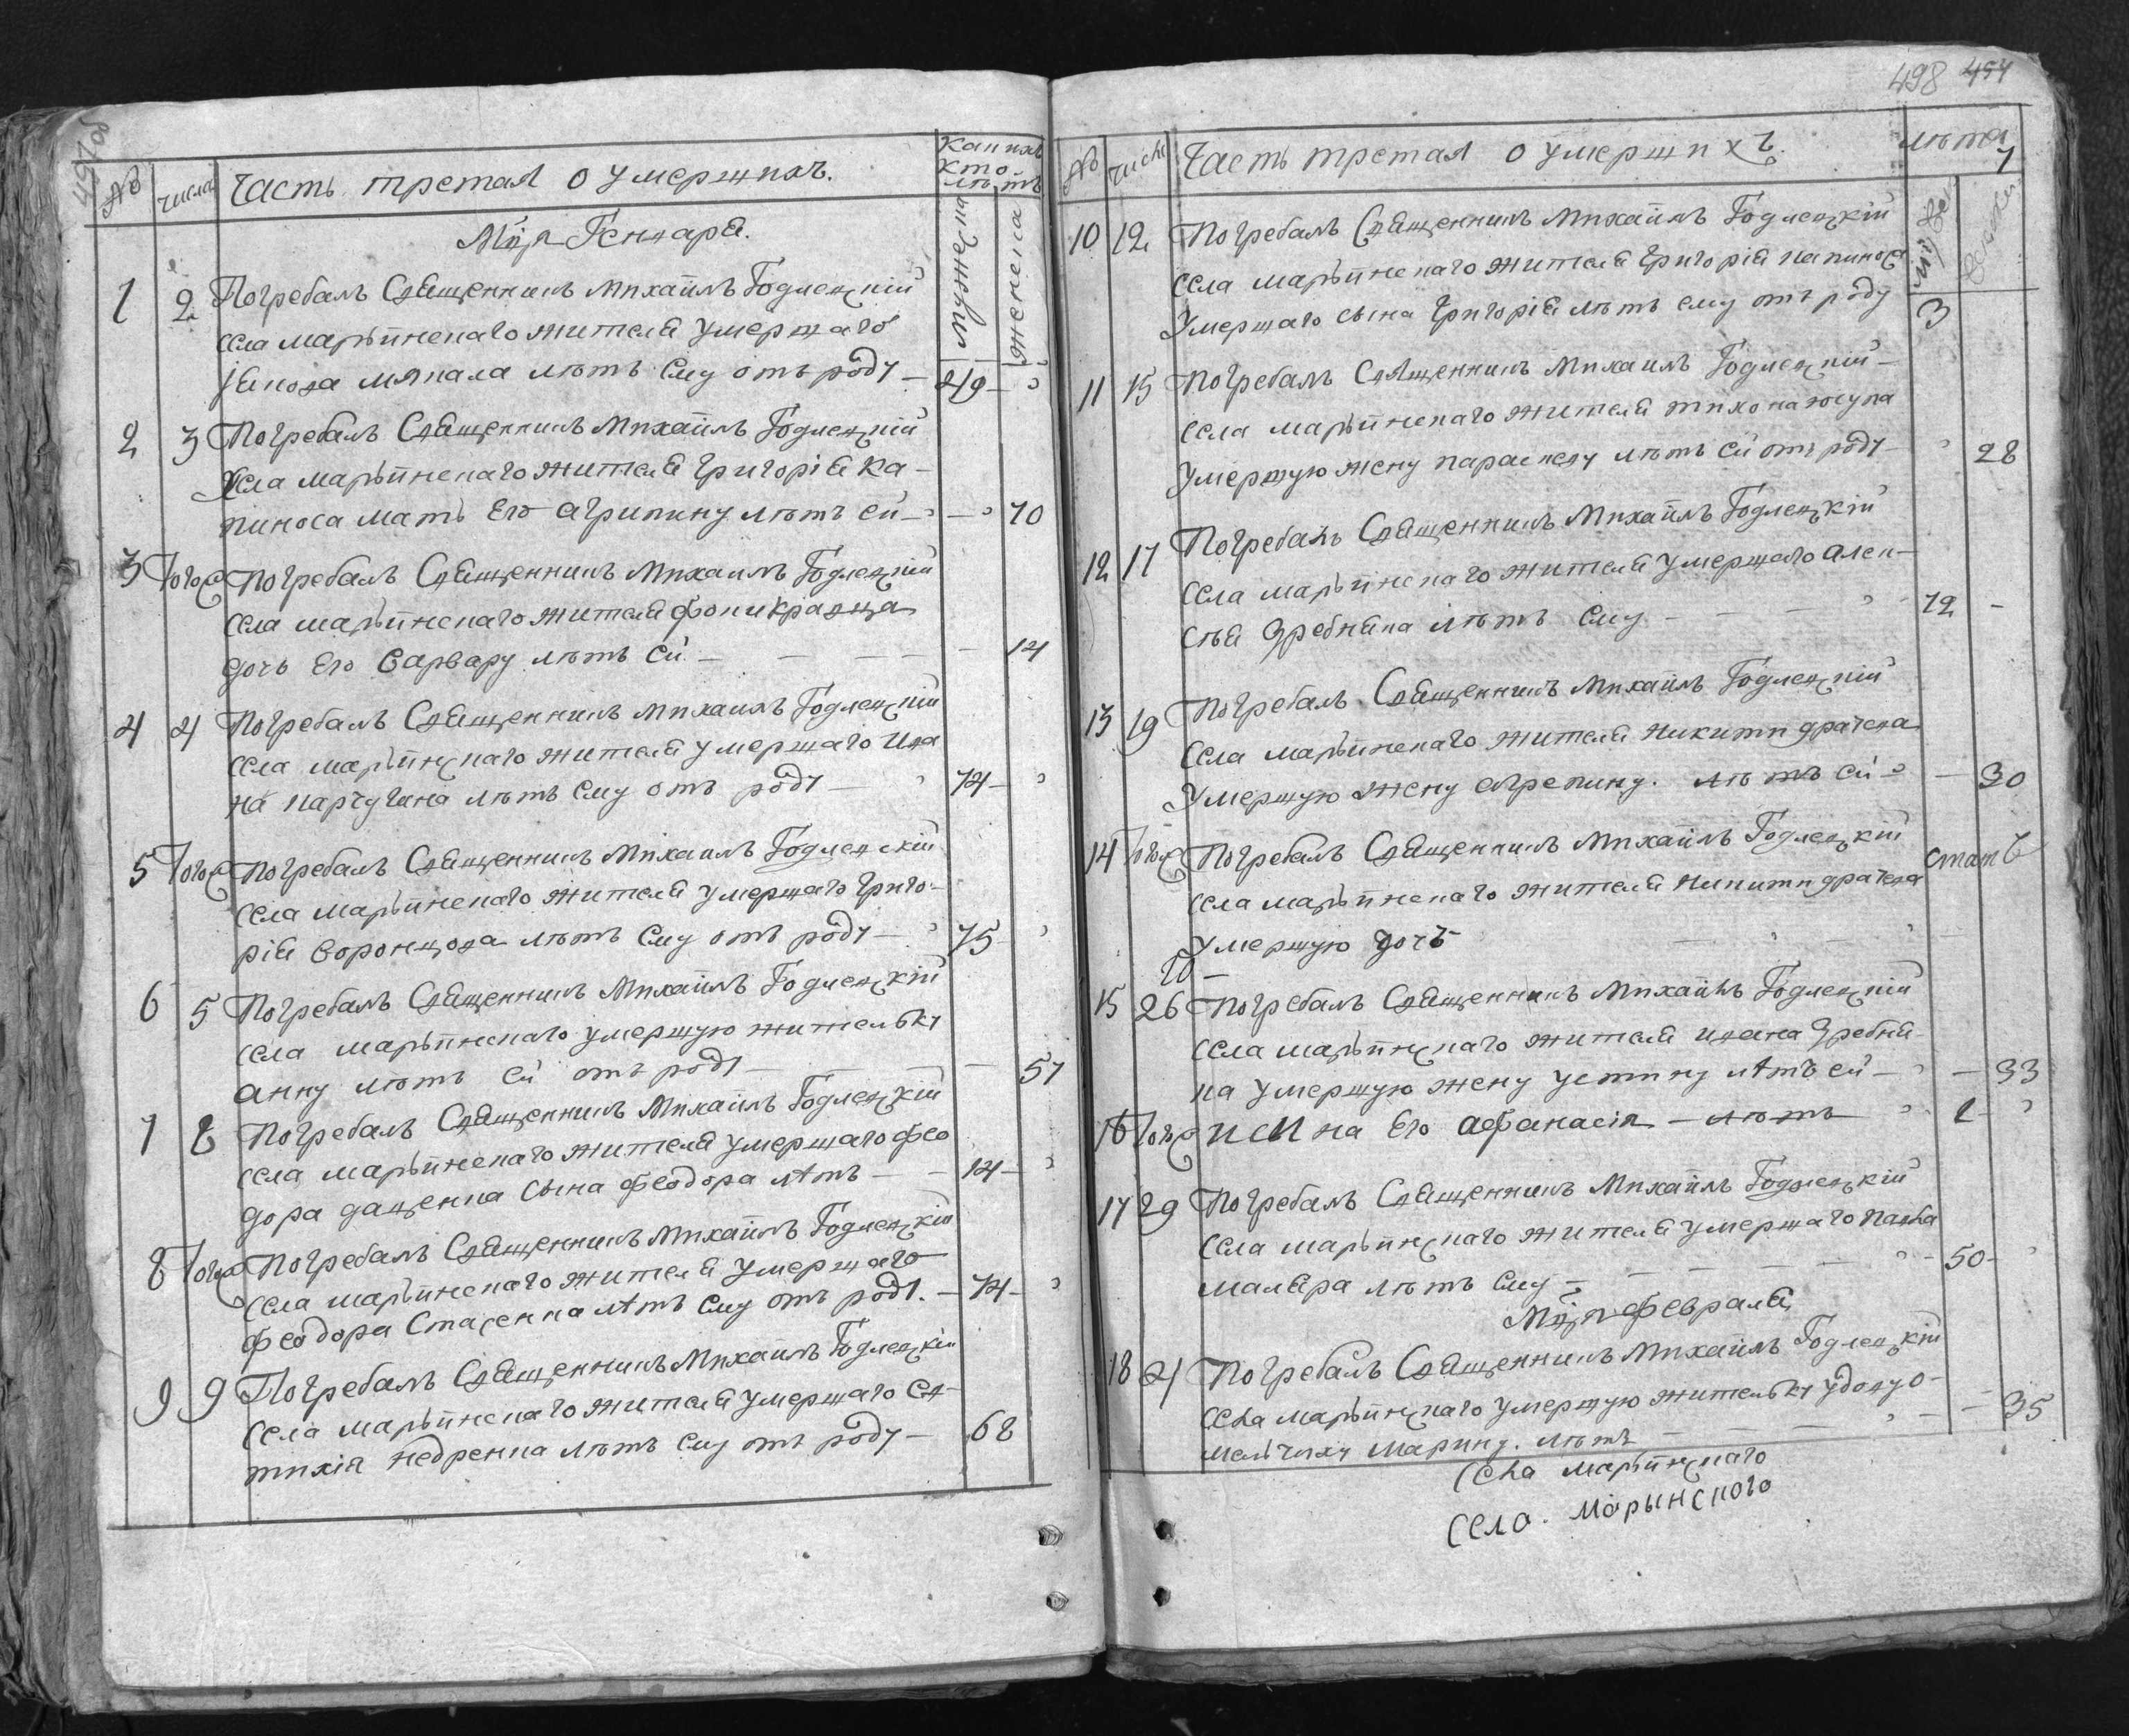 № числа Часть третая о умершихъ. Какихъ кто лѣтъ
мужеска женска
Мца Генъаря.
1 2 Погребалъ Священникъ Михаилъ Годлевскій
села марьинскаго жителя умершаго
Якова мякала лѣтъ ему отъ роду — 49 —
2 3 Погребалъ Священникъ Михаилъ Годлевскій
села марьинскаго жителя Григорія Ка-
пиноса мать Его Агрипину лѣтъ ей — 70
3 Того Погребалъ Священникъ Михаилъ Годлевскій
села марьинскаго жителя фоки кравца
дочь Его Варвару лѣтъ ей — 14
4 4 Погребалъ Священникъ Михаилъ Годлевскій
села марьинскаго жителя умершаго Ива
на лѣтъ ему отъ роду — 74 —
5 Того Погребалъ Священникъ Михаилъ Годлевскій
села марьинскаго жителя умершаго Григо-
рія Воронцова лѣтъ ему отъ роду — 75
6 5 Погребалъ Священникъ Михаилъ Годлевскій
села марьинскаго умершую жительку
анну лѣтъ ей отъ роду — 57
7 8 Погребалъ Священникъ Михаилъ Годлевскій
села марьинскаго жителя умершаго Фео
дора дащенка сына Феодора лѣтъ — 14 —
8 Того Погребалъ Священникъ Михаилъ Годлевскій
села марьинскаго жителя умершаго
Феодора Стасенка лѣтъ ему отъ роду. — 74 —
9 9 Погребалъ Священникъ Михаилъ Годлевскій
села марьинскаго жителя умершаго Ев-
тихія недренка лѣтъ ему отъ роду — 68
498
№ число Часть третая о умершихъ. лѣта
10 12 Погребалъ Священникъ Михаилъ Годлевскій
села марьинскаго жителя Григорія капиноса
Умершаго сына Григорія лѣтъ ему отъ роду 3
11 15 Погребалъ Священникъ Михаилъ Годлевскій —
села марьинскаго жителя тихона юсупа
Умершую жену параскеву лѣтъ ей отъ роду — 28
12 17 Погребалъ Священникъ Михаилъ Годлевскій
села марьинскаго жителя умершаго алек-
сѣя Гребняка лѣтъ ему — 72 —
13 19 Погребалъ Священникъ Михаилъ Годлевскій
села марьинскаго жителя Никити драчева
Умершую жену агрепину. лѣтъ ей — 30
14 Того Погребалъ Священникъ Михаилъ Годлевскій
села марьинскаго жителя Никити драчева
Умершую дочь
15 26 Погребалъ Священникъ Михаилъ Годлевскій
села марьинскаго жителя ивана Гребня
ка умершую жену устину лѣтъ ей — 33
16 Того И сина Его Афанасія — лѣтъ
17 29 Погребалъ Священникъ Михаилъ Годлевскій
села марьинскаго жителя умершаго павла
маляра лѣтъ ему — 50 —
Мца Февраля
18 4 Погребалъ Священникъ Михаилъ Годлевскій
села марьинскаго умершую жительку удову о-
мельчиху Марину. лѣтъ — 35
села марьинскаго
села. марынского